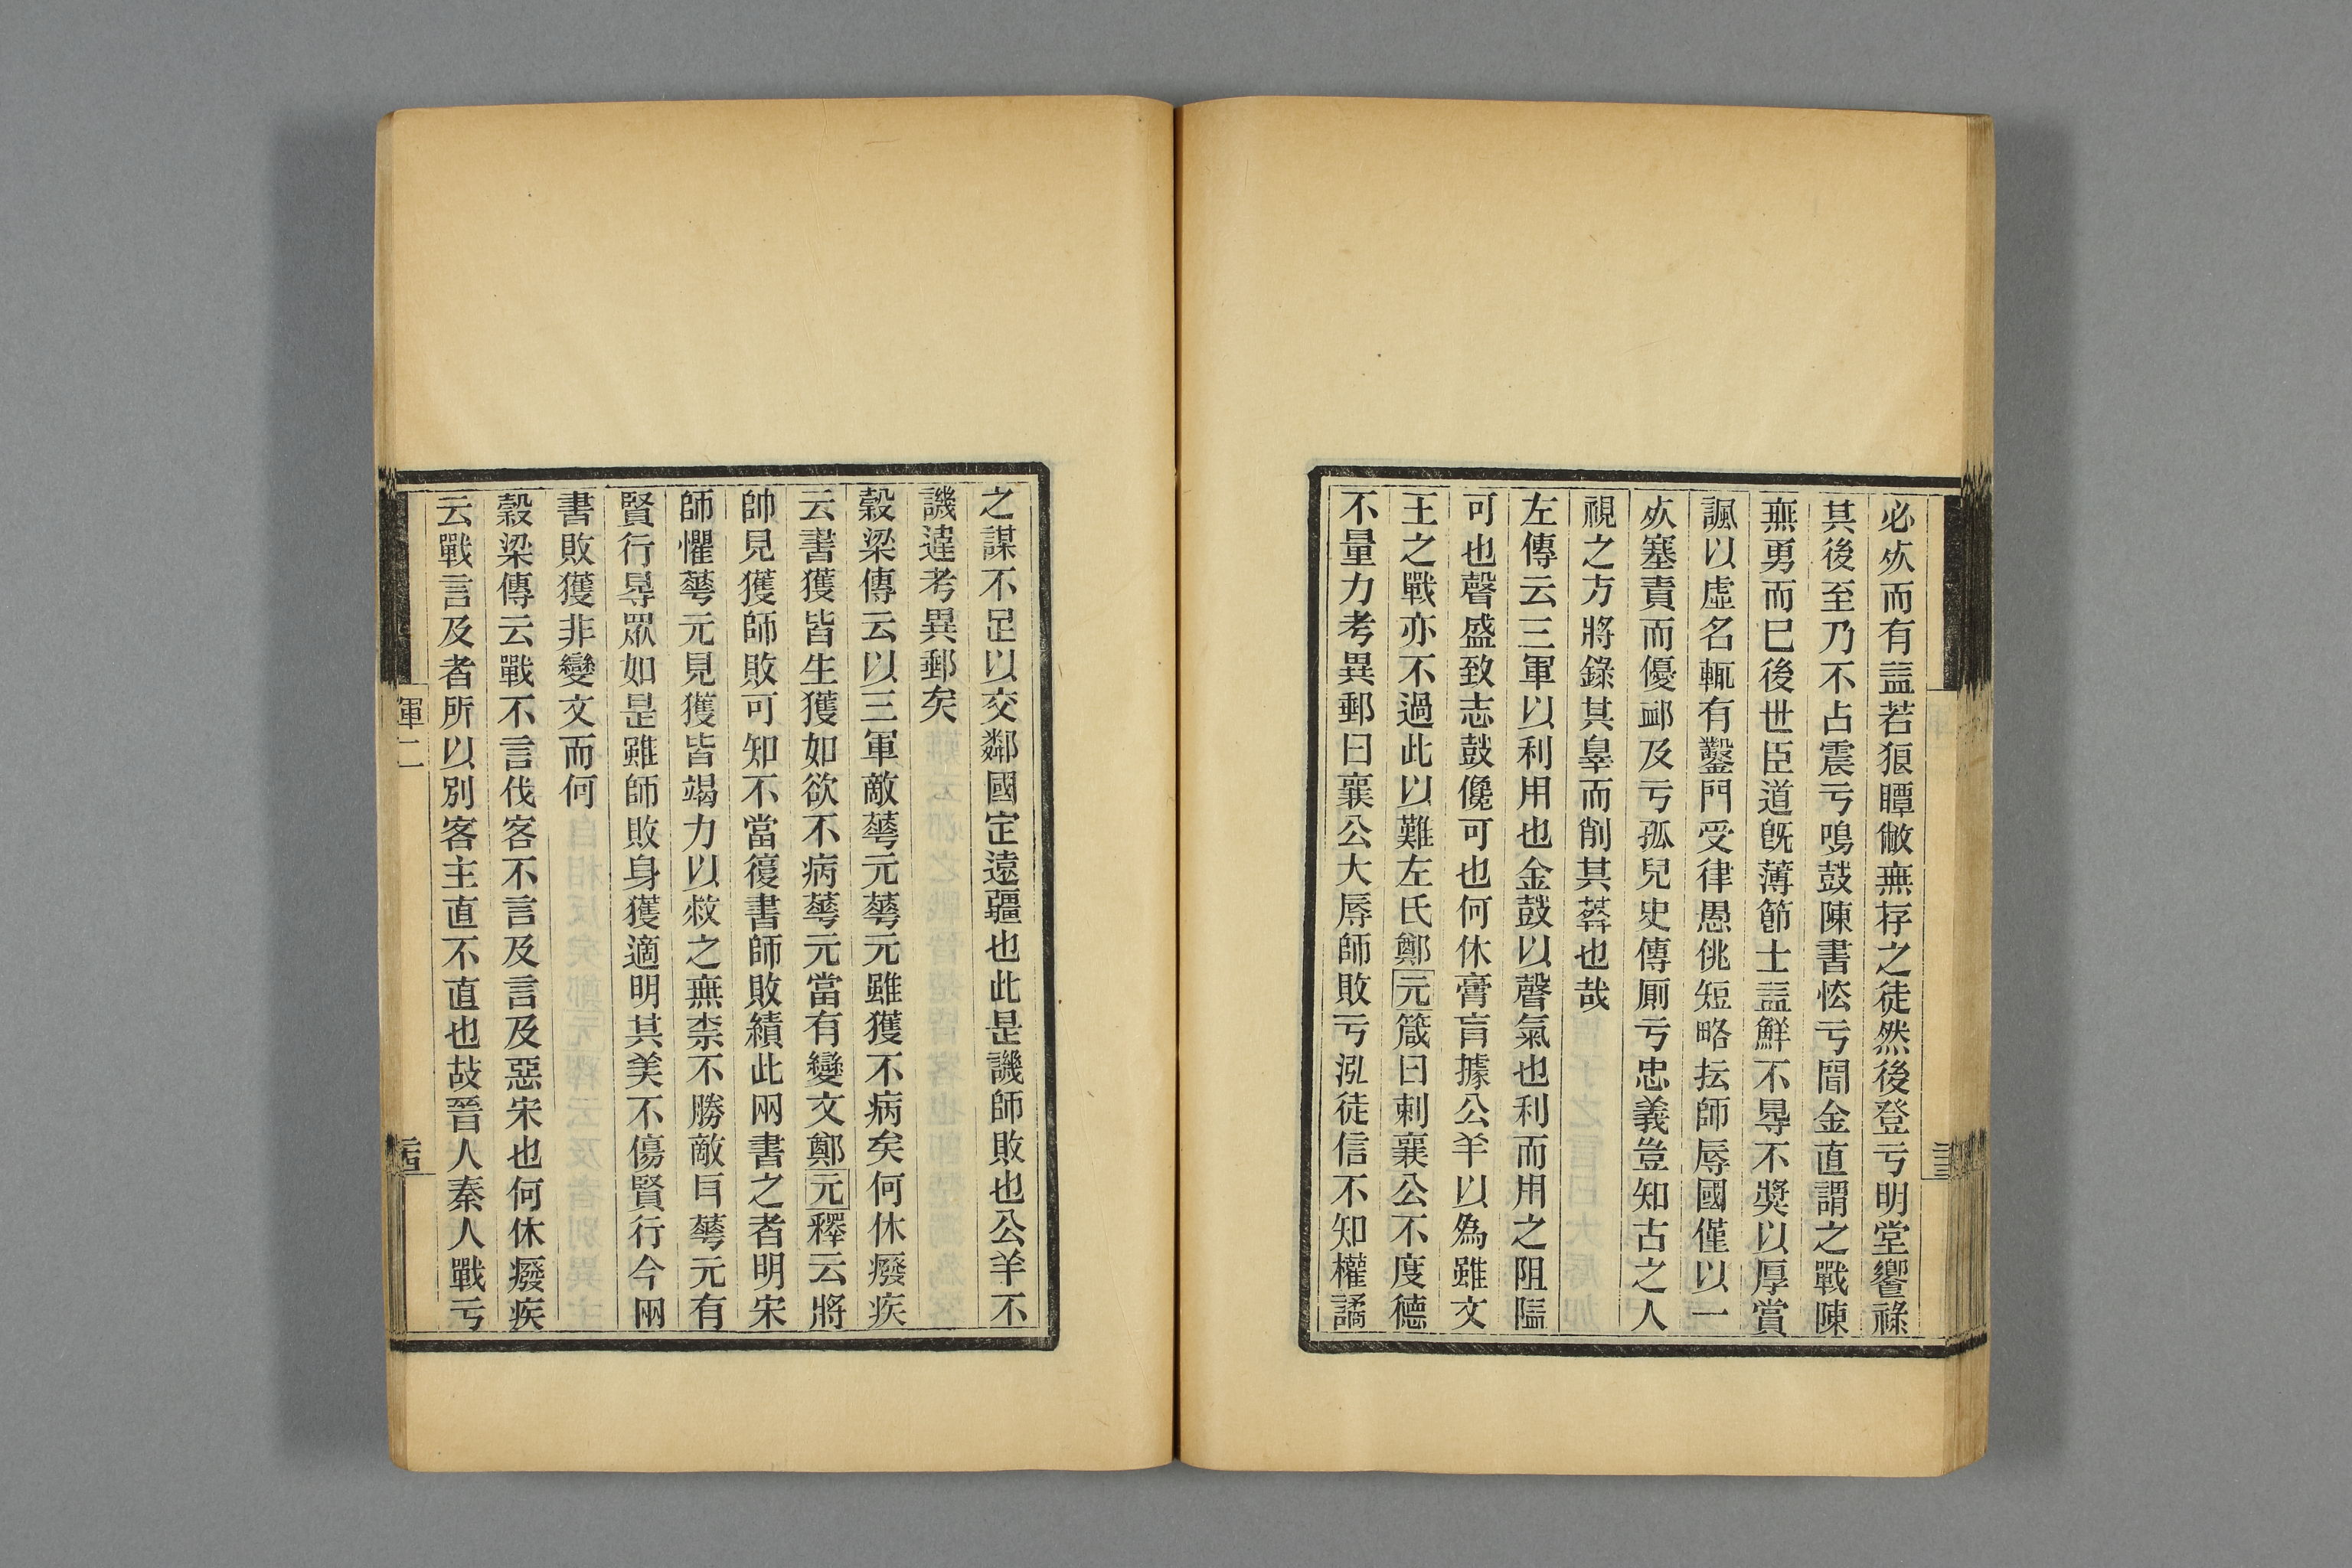 必㱙而有盇若狼瞫僘無存之徒然後登亏明堂饗祿
其後至乃不占震亏鳴鼓陳書恡亏聞金直謂之戰陳
無勇而已後世臣道旣薄節士盇鮮不㝵不奬以厚賞
諷以虛名輒有鑿門受律愚佻短略抎師辱國僅以一
㱙塞責而優䘏及亏孤兒史傳厠亏忠義豈知古之人
視之方將錄其辠而削其葬也哉
左傳云三軍以利用也金鼓以聲氣也利而用之阻隘
可也聲盛致志鼓儳可也何休膏肓據公羊以爲雖文
王之戰亦不過此以難左氏鄭元箴曰刺襄公不度德
不量力考異郵曰襄公大辱師敗亏泓徒信不知權譎
之謀不足以交鄰國定遠疆也此是譏師敗也公羊不
譏違考異郵矣
穀梁傳云以三軍敵蕚元蕚元雖獲不病矣何休癈疾
云書獲皆生獲如欲不病蕚元當有變文鄭元釋云將
帥見獲師敗可知不當復書師敗績此兩書之者明宋
師懼蕚元見獲皆竭力以救之無柰不勝敵耳蕚元有
賢行㝵眾如是雖師敗身獲適明其美不傷賢行今兩
書敗獲非變文而何
穀梁傳云戰不言伐客不言及言及惡宋也何休癈疾
云戰言及者所以別客主直不直也故晉人秦人戰亏
軍二